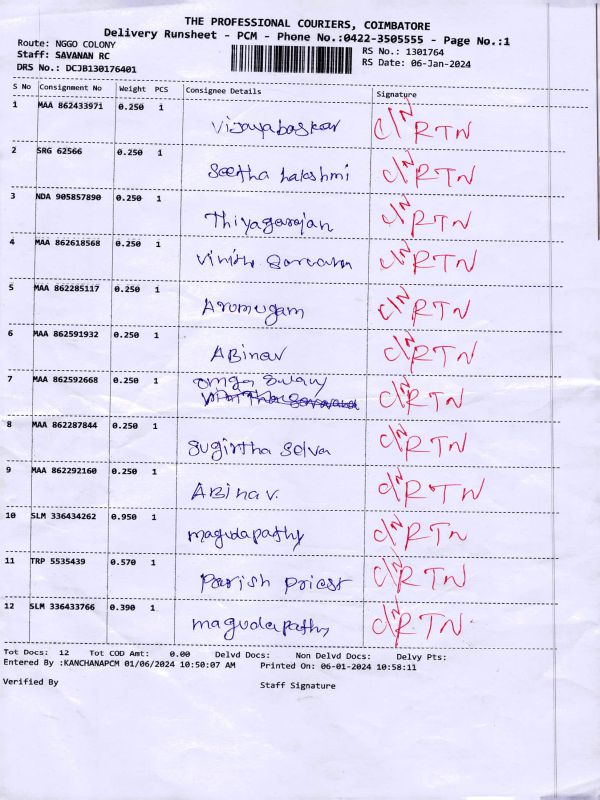 THE PROFESSIONAL COURIERS, COIMBATORE
Delivery Runsheet - PCM - Phone No.:0422-3505555 - Page No.:1
Route: NGGO COLONY
Staff: SAVANAN RC
DRS No.: DCJB130176401
RS No.: 1301764
RS Date: 06-Jan-2024
S No Consignment No Weight PCS Consignee Details Signature
1 MAA 862433971 0.250 1 Vijayabaskar C/N RTN
2 SRG 62566 0.250 1 Seetha Lakshmi C/N RTN
3 NDA 905857890 0.250 1 Thiyagarajan C/N RTN
4 MAA 862618568 0.250 1 C/N RTN
5 MAA 862285117 0.250 1 Arumugam C/N RTN
6 MAA 862591932 0.250 1 ABinav C/N RTN
7 MAA 862592668 0.250 1 C/N RTN
8 MAA 862287844 0.250 1 Sugirtha Selva C/N RTN
9 MAA 862292160 0.250 1 ABinav. C/N RTN
10 SLM 336434262 0.950 1 magudapathy C/N RTN
11 TRP 5535439 0.570 1 Parish Priest C/N RTN
12 SLM 336433766 0.390 1 magudapathy C/N RTN
Tot Docs: 12 Tot COD Amt: 0.00 Delvd Docs: Non Delvd Docs: Delvy Pts:
Entered By :KANCHANAPCM 01/06/2024 10:50:07 AM Printed On: 06-01-2024 10:58:11
Verified By Staff Signature